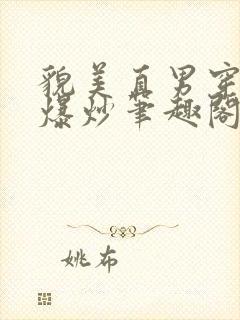 貌美直男穿
爆炒笔趣阁
姚布